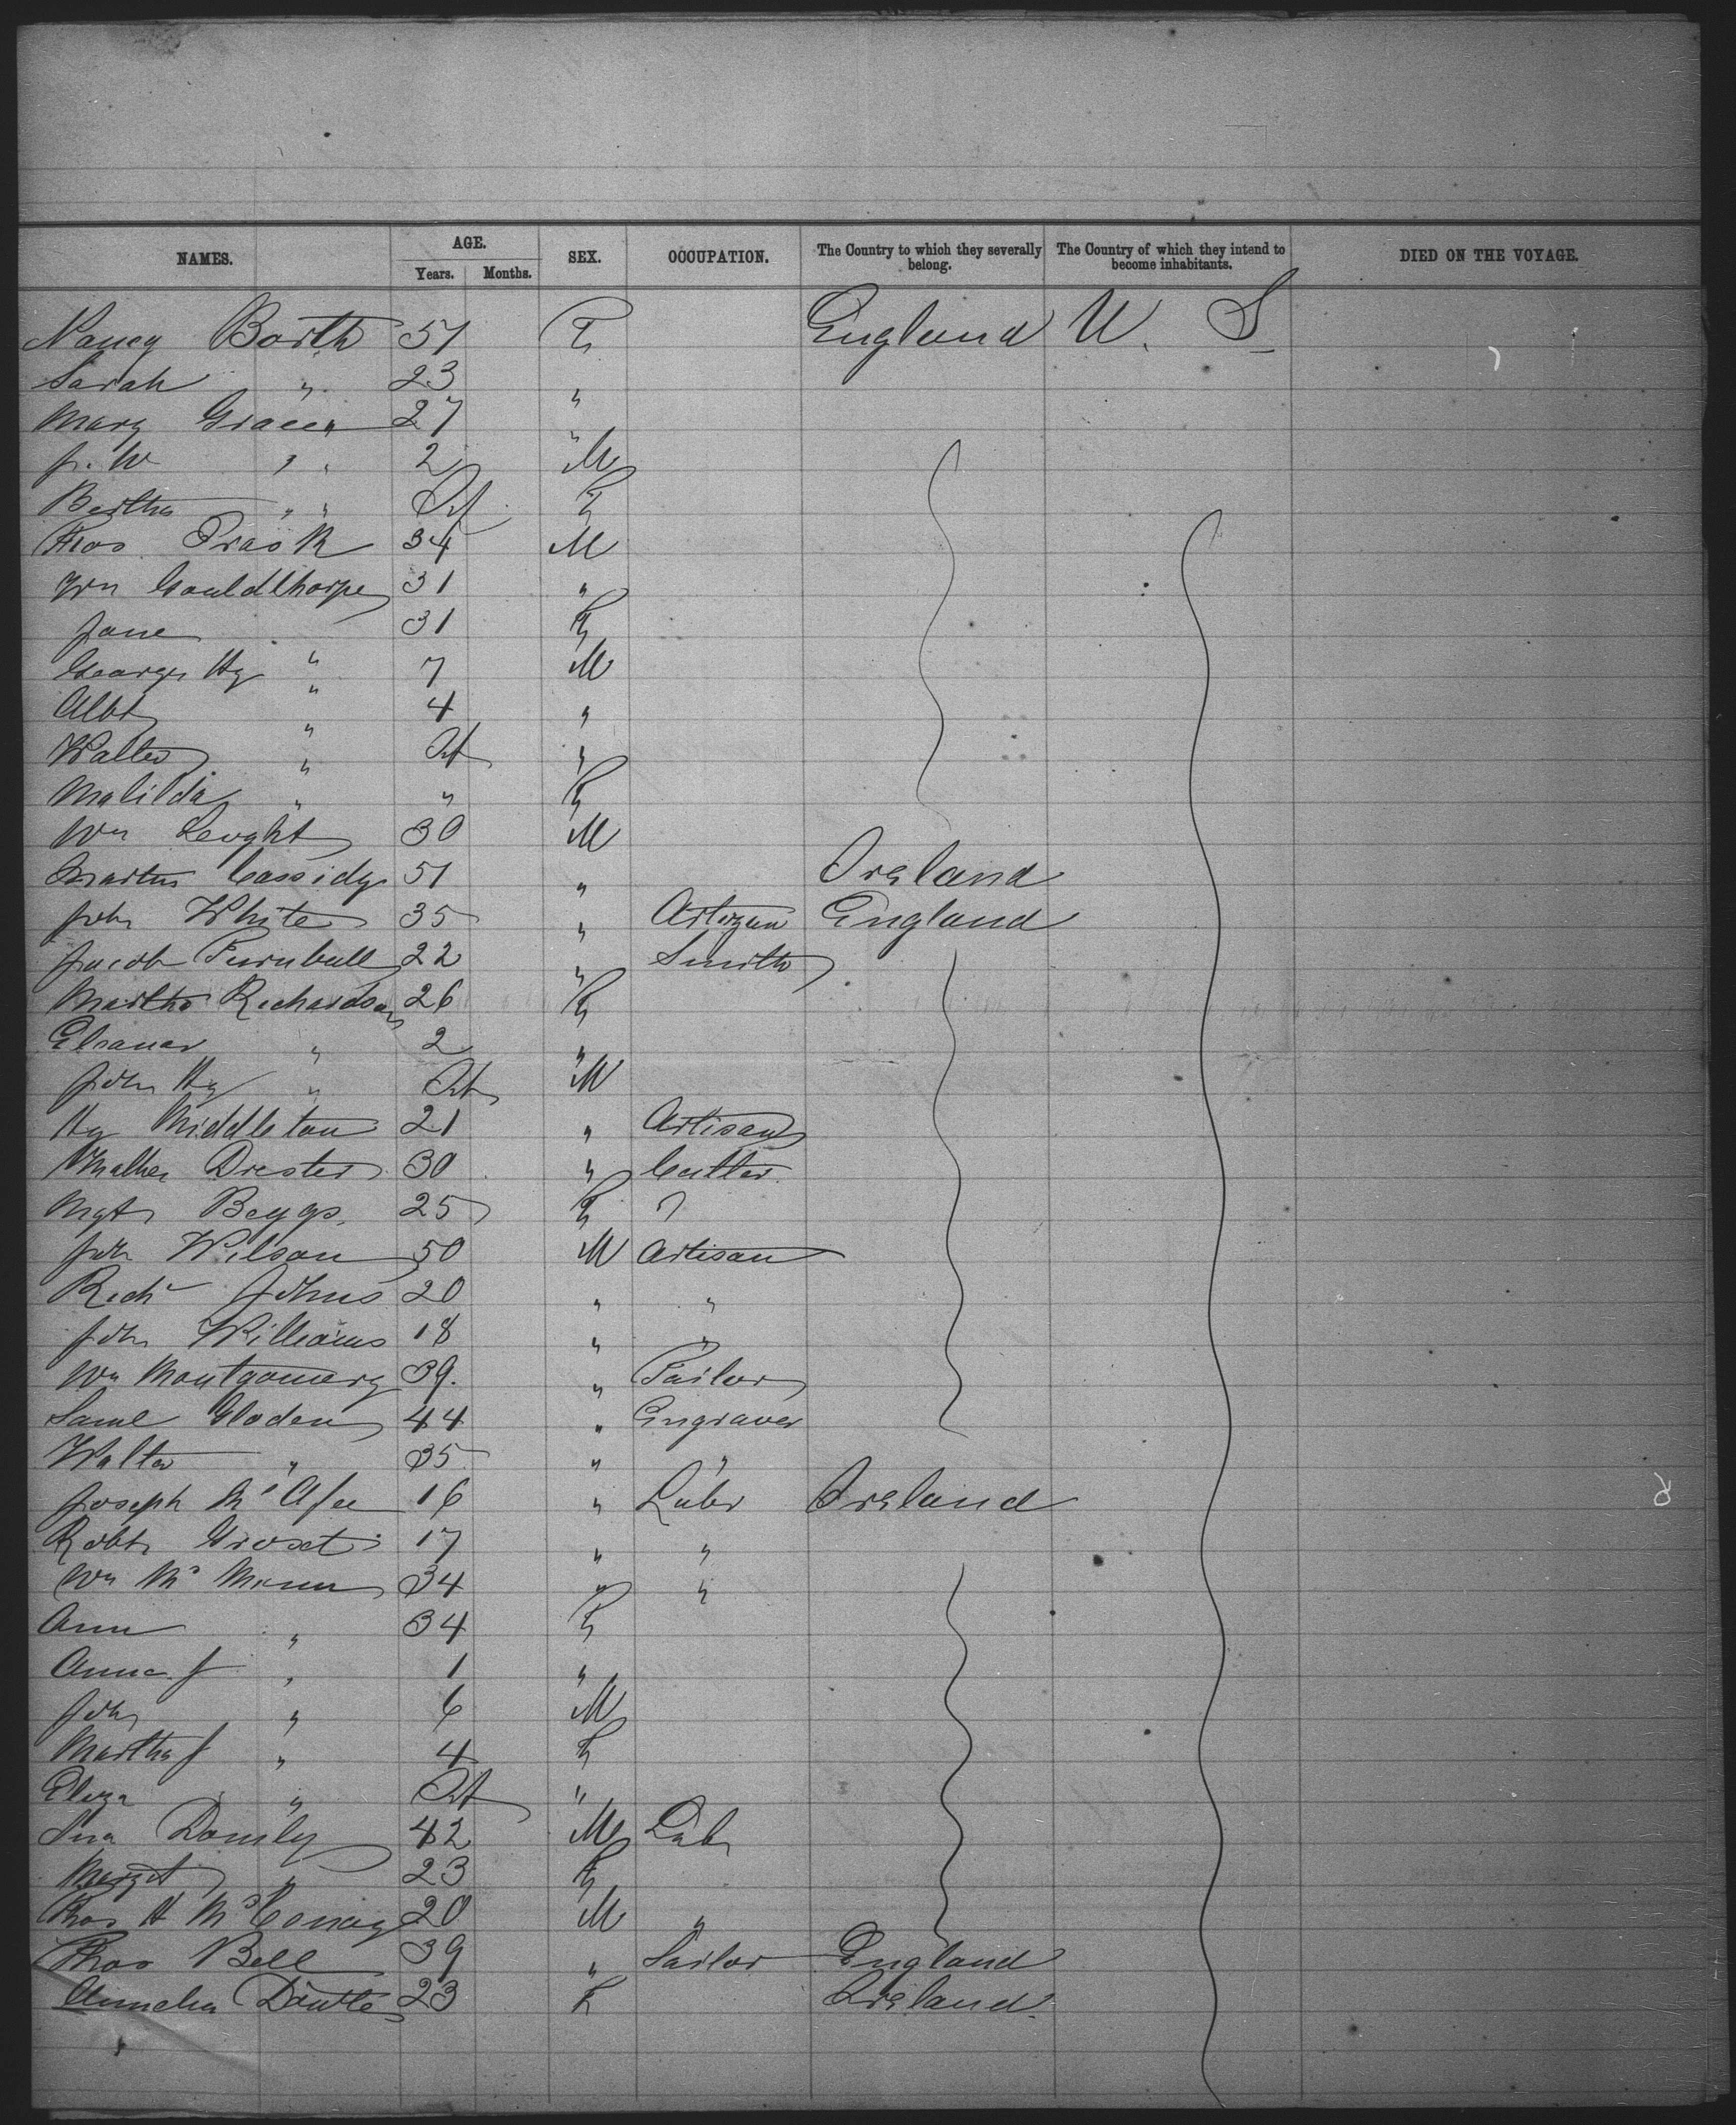 NAMES. AGE. Years. Months. SEX. OCCUPATION. The Country to which they severally belong. The Country of which they intend to become inhabitants. DIED ON THE VOYAGE.
Nancy Borth 51 F England U. S
Sarah " 23 "
Mary Gracen 27 "
J. W " " 2 M
Bertha " " Inf F
Thos Prask 34 M
Wm Gouldthorpe 31 "
Jane 31 F
George Hy " 7 M
Albt " 4 "
Walter " Inf "
Matilda " " F
Wm Leught 30 M
Martin Cassidy 51 " Ireland
John White 35 " Artizan England
Jacob Turnbull 22 " Smith
Martha Richardson 26 F
Eleanor " 2 "
John Hy " Inf M
Hy Middleton 21 " Artisan
Drester 30 " Cutler
Mgt Beggs 25 F
John Wilson 50 M Artisan
Richd Johns 20 " "
John Williams 18 " "
Wm Montgomery 39. " Tailor
Saml Gloden 44 " Engraver
Walter " 35 " "
Joseph McAfee 16 " Labr Ireland
Robt Groset 17 " "
Wm Mc Munn 34 " "
Ann " 34 F
Anna J " 1 "
John " 6 M
Martha J " 4 F
Eliza " Inf "
Donnly 42 M Lab
Margt " 23 F
Thos H McConaig 20 M "
Thos Bell 39 " Sailor England
Annelia 23 F Ireland